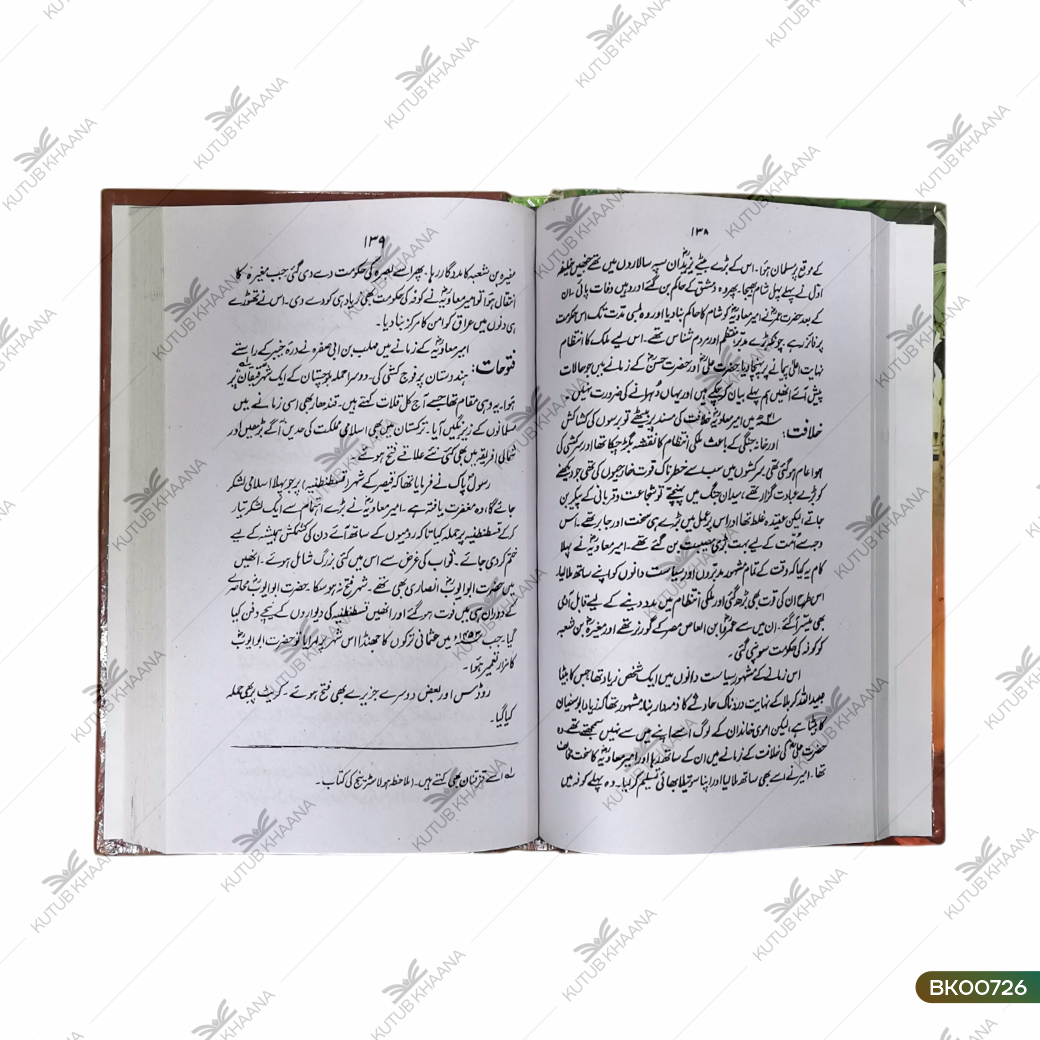 ۱۳۸
کے موقع پر مسلمان ہوا۔ اس کے بڑے بیٹے یزید ان سپہ سالاروں میں تھے جنھیں خلیفہ
اوّل نے پہلے پہل شام بھیجا۔ پھر وہ دمشق کے حاکم بن گئے اور وہیں وفات پائی۔ ان
کے بعد حضرت عمرؓ نے امیر معاویہؓ کو شام کا حاکم بنا دیا اور وہ لمبی مدّت تک اس حکومت
پر فائز رہے۔ چونکہ بڑے مدبّر، منتظم اور مردم شناس تھے۔ اس لیے ملک کا انتظام
نہایت اعلیٰ پیمانے پر پہنچا دیا۔ حضرت علیؓ اور حضرت حسنؓ کے زمانے میں جو حالات
پیش آئے انھیں ہم پہلے بیان کر چکے ہیں اور یہاں دُہرانے کی ضرورت نہیں۔
خلافت: میں امیر معاویہؓ خلافت کی مسند پر بیٹھے تو برسوں کی کشاکش
اور خانہ جنگی کے باعث ملکی انتظام کا نقشہ بگڑ چکا تھا اور سرکشی کی
ہوا عام ہو گئی تھی۔ سرکشوں میں سب سے خطرناک قوت خارجیوں کی تھی جو دیکھنے
کو بڑے عبادت گزار تھے، میدان جنگ میں پہنچتے تو شجاعت و قربانی کے پیکر بن
جاتے، لیکن عقیدہ غلط تھا اور اس پر عمل میں بڑے ہی سخت اور جابر تھے۔ اس
وجہ سے اُمّت کے لیے بہت بڑی مصیبت بن گئے تھے۔ امیر معاویہؓ نے پہلا
کام یہ کیا کہ وقت کے تمام مشہور مدبّروں اور سیاست دانوں کو اپنے ساتھ ملا لیا۔
اس طرح ان کی قوت بھی بڑھ گئی اور ملکی انتظام میں مدد دینے کے لیے قابل آدمی
بھی میسّر آ گئے۔ ان میں سے عمروؓ بن العاص مصر کے گورنر تھے اور مغیرہؓ بن شعبہ
کو کوفہ کی حکومت سونپی گئی۔
اس زمانے کے مشہور سیاست دانوں میں ایک شخص زیاد تھا جس کا بیٹا
عبیداللہ کربلا کے نہایت دردناک حادثے کا ذمہ دار بنا۔ مشہور تھا کہ زیاد ابوسفیان
کا بیٹا ہے، لیکن اموی خاندان کے لوگ اُسے اپنے میں سے نہیں سمجھتے تھے۔ وہ
حضرت علیؓ کی خلافت کے زمانے میں ان کے ساتھ رہا اور امیر معاویہؓ کا سخت مخالف
تھا۔ امیر نے اسے بھی ساتھ ملا لیا اور اپنا سوتیلا بھائی تسلیم کر لیا۔ وہ پہلے کوفہ میں
۱۳۹
مغیرہ بن شعبہ کا مددگار رہا۔ پھر اسے بصرہ کی حکومت دے دی گئی جب مغیرہؓ کا
انتقال ہوا تو امیر معاویہؓ نے کوفہ کی حکومت بھی زیاد ہی کو دے دی۔ اس نے تھوڑے
ہی دنوں میں عراق کو امن کا مرکز بنا دیا۔
فتوحات: امیر معاویہؓ کے زمانے میں مہلب بن ابی صفرہ نے درۂ خیبر کے راستے
ہندوستان پر فوج کشی کی۔ دوسرا حملہ بلوچستان کے ایک شہر قیقان لہ پر
ہوا۔ یہ وہی مقام تھا جسے آج کل قلات کہتے ہیں۔ قندھار بھی اسی زمانے میں
مسلمانوں کے زیر نگیں آیا۔ ترکستان میں بھی اسلامی مملکت کی حدیں آگے بڑھیں اور
شمالی افریقہ میں بھی کئی نئے علاقے فتح ہوئے۔
رسولؐ پاک نے فرمایا تھا کہ قیصر کے شہر (قسطنطنیہ) پر جو پہلا اسلامی لشکر
جائے گا، وہ مغفرت یافتہ ہے۔ امیر معاویہؓ نے بڑے اہتمام سے ایک لشکر تیار
کر کے قسطنطنیہ پر حملہ کیا تاکہ رومیوں کے ساتھ آئے دن کی کشمکش ہمیشہ کے لیے
ختم کر دی جائے۔ ثواب کی غرض سے اس میں کئی بزرگ شامل ہوئے۔ انھیں
میں حضرت ابو ایوبؓ انصاری بھی تھے۔ شہر فتح نہ ہو سکا۔ حضرت ابو ایوبؓ محاصرے
کے دوران ہی میں فوت ہو گئے اور انھیں قسطنطنیہ کی دیواروں کے نیچے دفن کیا
گیا۔ جب ۱۴۵۳ء میں عثمانی ترکوں کا جھنڈا اس شہر پر لہرایا تو حضرت ابو ایوبؓ
کا مزار تعمیر ہوا۔
روڈس اور بعض دوسرے جزیرے بھی فتح ہوئے۔ کریٹ پر بھی حملہ
کیا گیا۔
لہ اسے قیقنان بھی کہتے ہیں۔ (ملاحظہ ہو لاسٹرینج کی کتاب۔
KUTUB KHAANA
BK00726